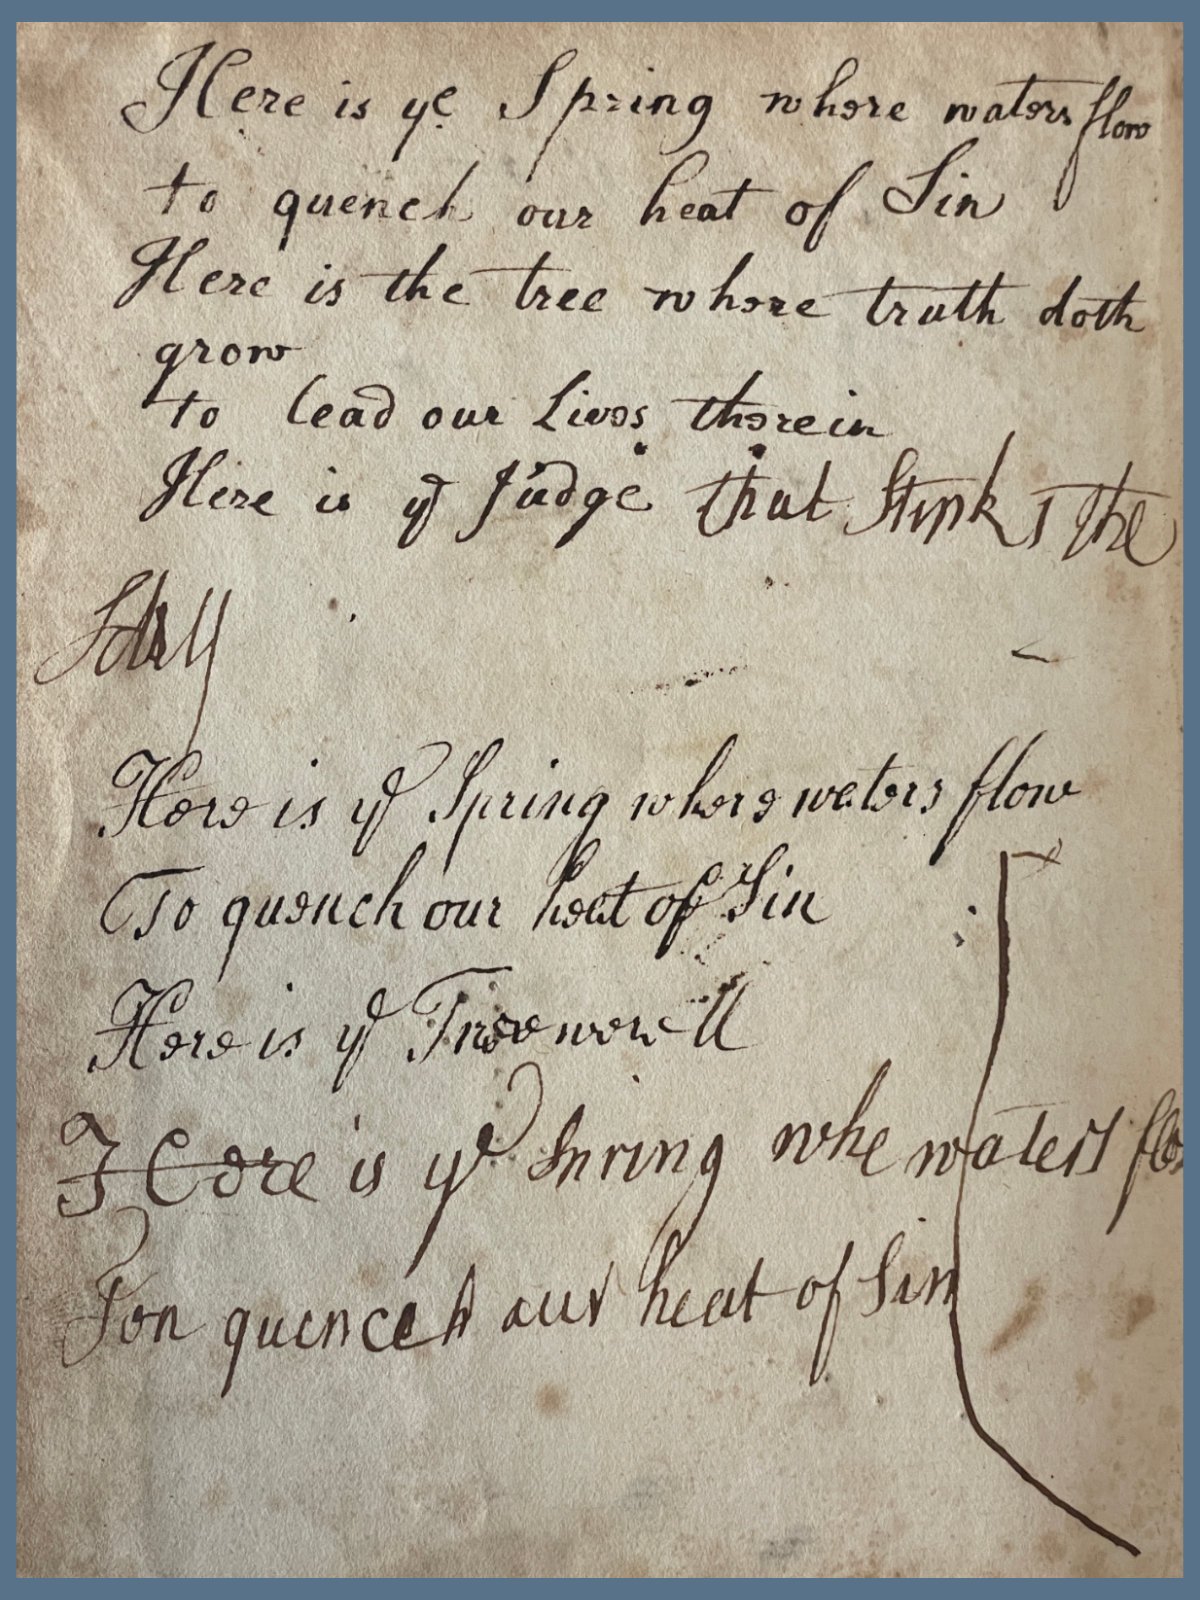 Here is ye Spring where waters flow
to quench our heat of Sin
Here is the tree where truth doth
grow
to lead our Lives therein
Here is ye Judge that Stinks the
Here is ye Spring where waters flow
To quench our heat of Sin
Here is ye Tree
is ye whe waters flo
quench our heat of Sin